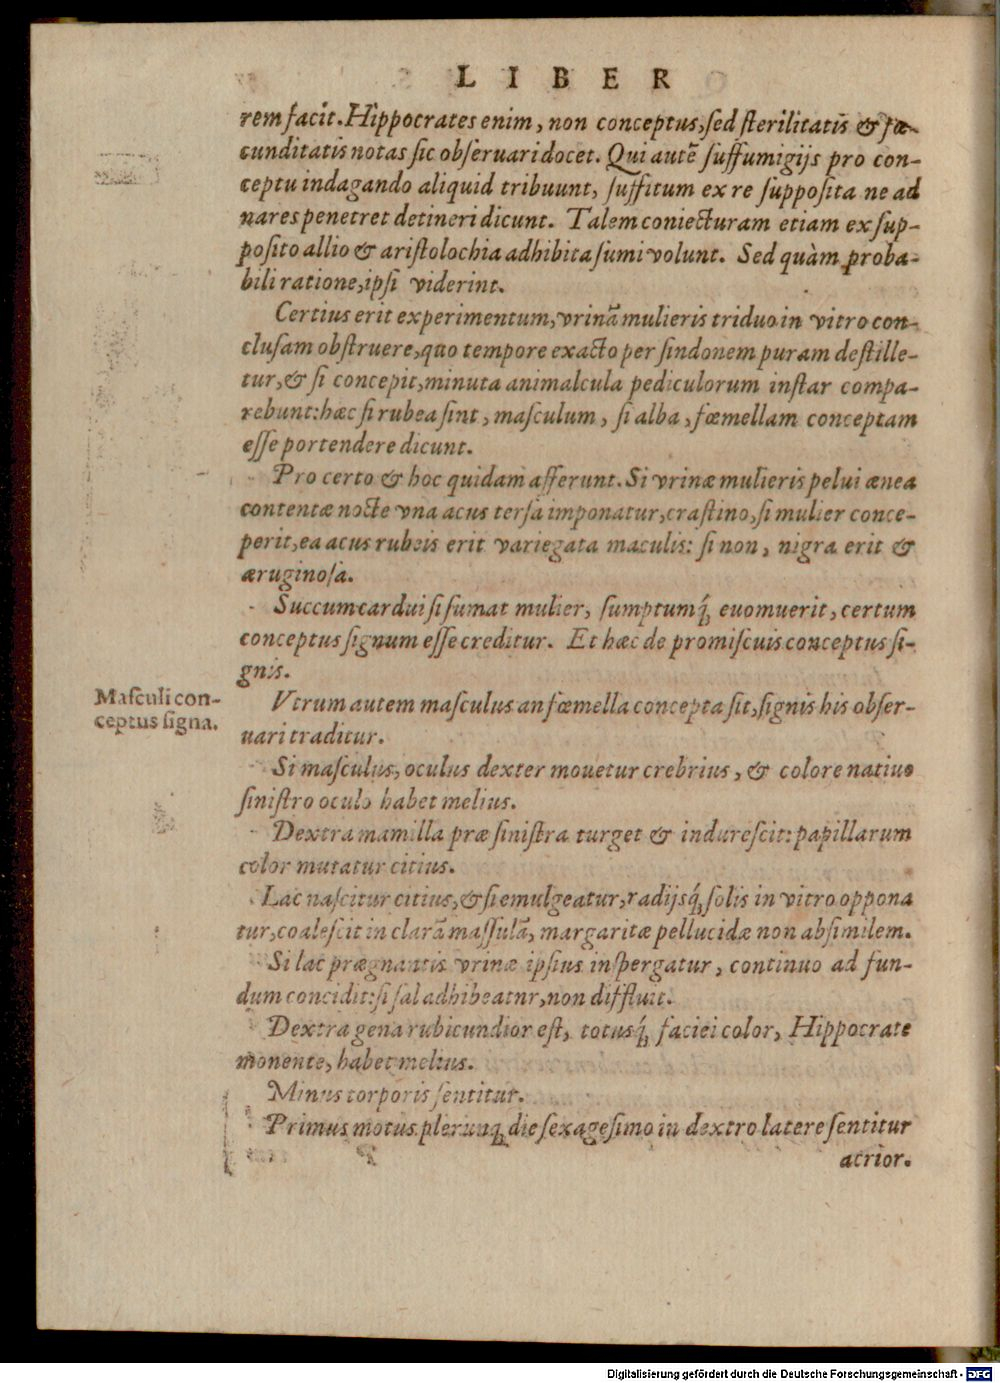 LIBER
rem facit. Hippocrates enim, non conceptus, sed sterilitatis & fœ-
cunditatis notas sic obseruari docet. Qui autē suffumigijs pro con-
ceptu indagando aliquid tribuunt, suffitum ex re supposita ne ad
nares penetret detineri dicunt. Talem coniecturam etiam ex sup-
posito allio & aristolochia adhibita sumi volunt. Sed quàm proba-
bili ratione, ipsi viderint.
Certius erit experimentum, vrinā mulieris triduo in vitro con-
clusam obstruere, quo tempore exacto per sindonem puram destille-
tur, & si concepit, minuta animalcula pediculorum instar compa-
rebunt: hæc si rubea sint, masculum, si alba, fœmellam conceptam
esse portendere dicunt.
Pro certo & hoc quidam afferunt. Si vrinæ mulieris pelui ænea
contentæ nocte vna acus tersa imponatur, crastino, si mulier conce-
perit, ea acus rubeis erit variegata maculis: si non, nigra erit &
æruginosa.
Succum cardui si sumat mulier, sumptumq́; euomuerit, certum
conceptus signum esse creditur. Et hæc de promiscuis conceptus si-
gnis.
Masculi con-
ceptus signa.
Vtrum autem masculus an fœmella concepta sit, signis his obser-
uari traditur.
Si masculus, oculus dexter mouetur crebrius, & colore natiuo
sinistro oculo habet melius.
Dextra mamilla præ sinistra turget & indurescit: papillarum
color mutatur citius.
Lac nascitur citius, & si emulgeatur, radijsq́; solis in vitro oppona
tur, coalescit in clarā massulā, margaritæ pellucidæ non absimilem.
Si lac prægnantis vrinæ ipsius inspergatur, continuo ad fun-
dum concidit: si sal adhibeatnr, non diffluit.
Dextra gena rubicundior est, totusq́; faciei color, Hippocrate
monente, habet melius.
Minus torporis sentitur.
Primus motus plerunq; die sexagesimo in dextro latere sentitur
acrior.
Digitalisierung gefördert durch die Deutsche Forschungsgemeinschaft - DFG